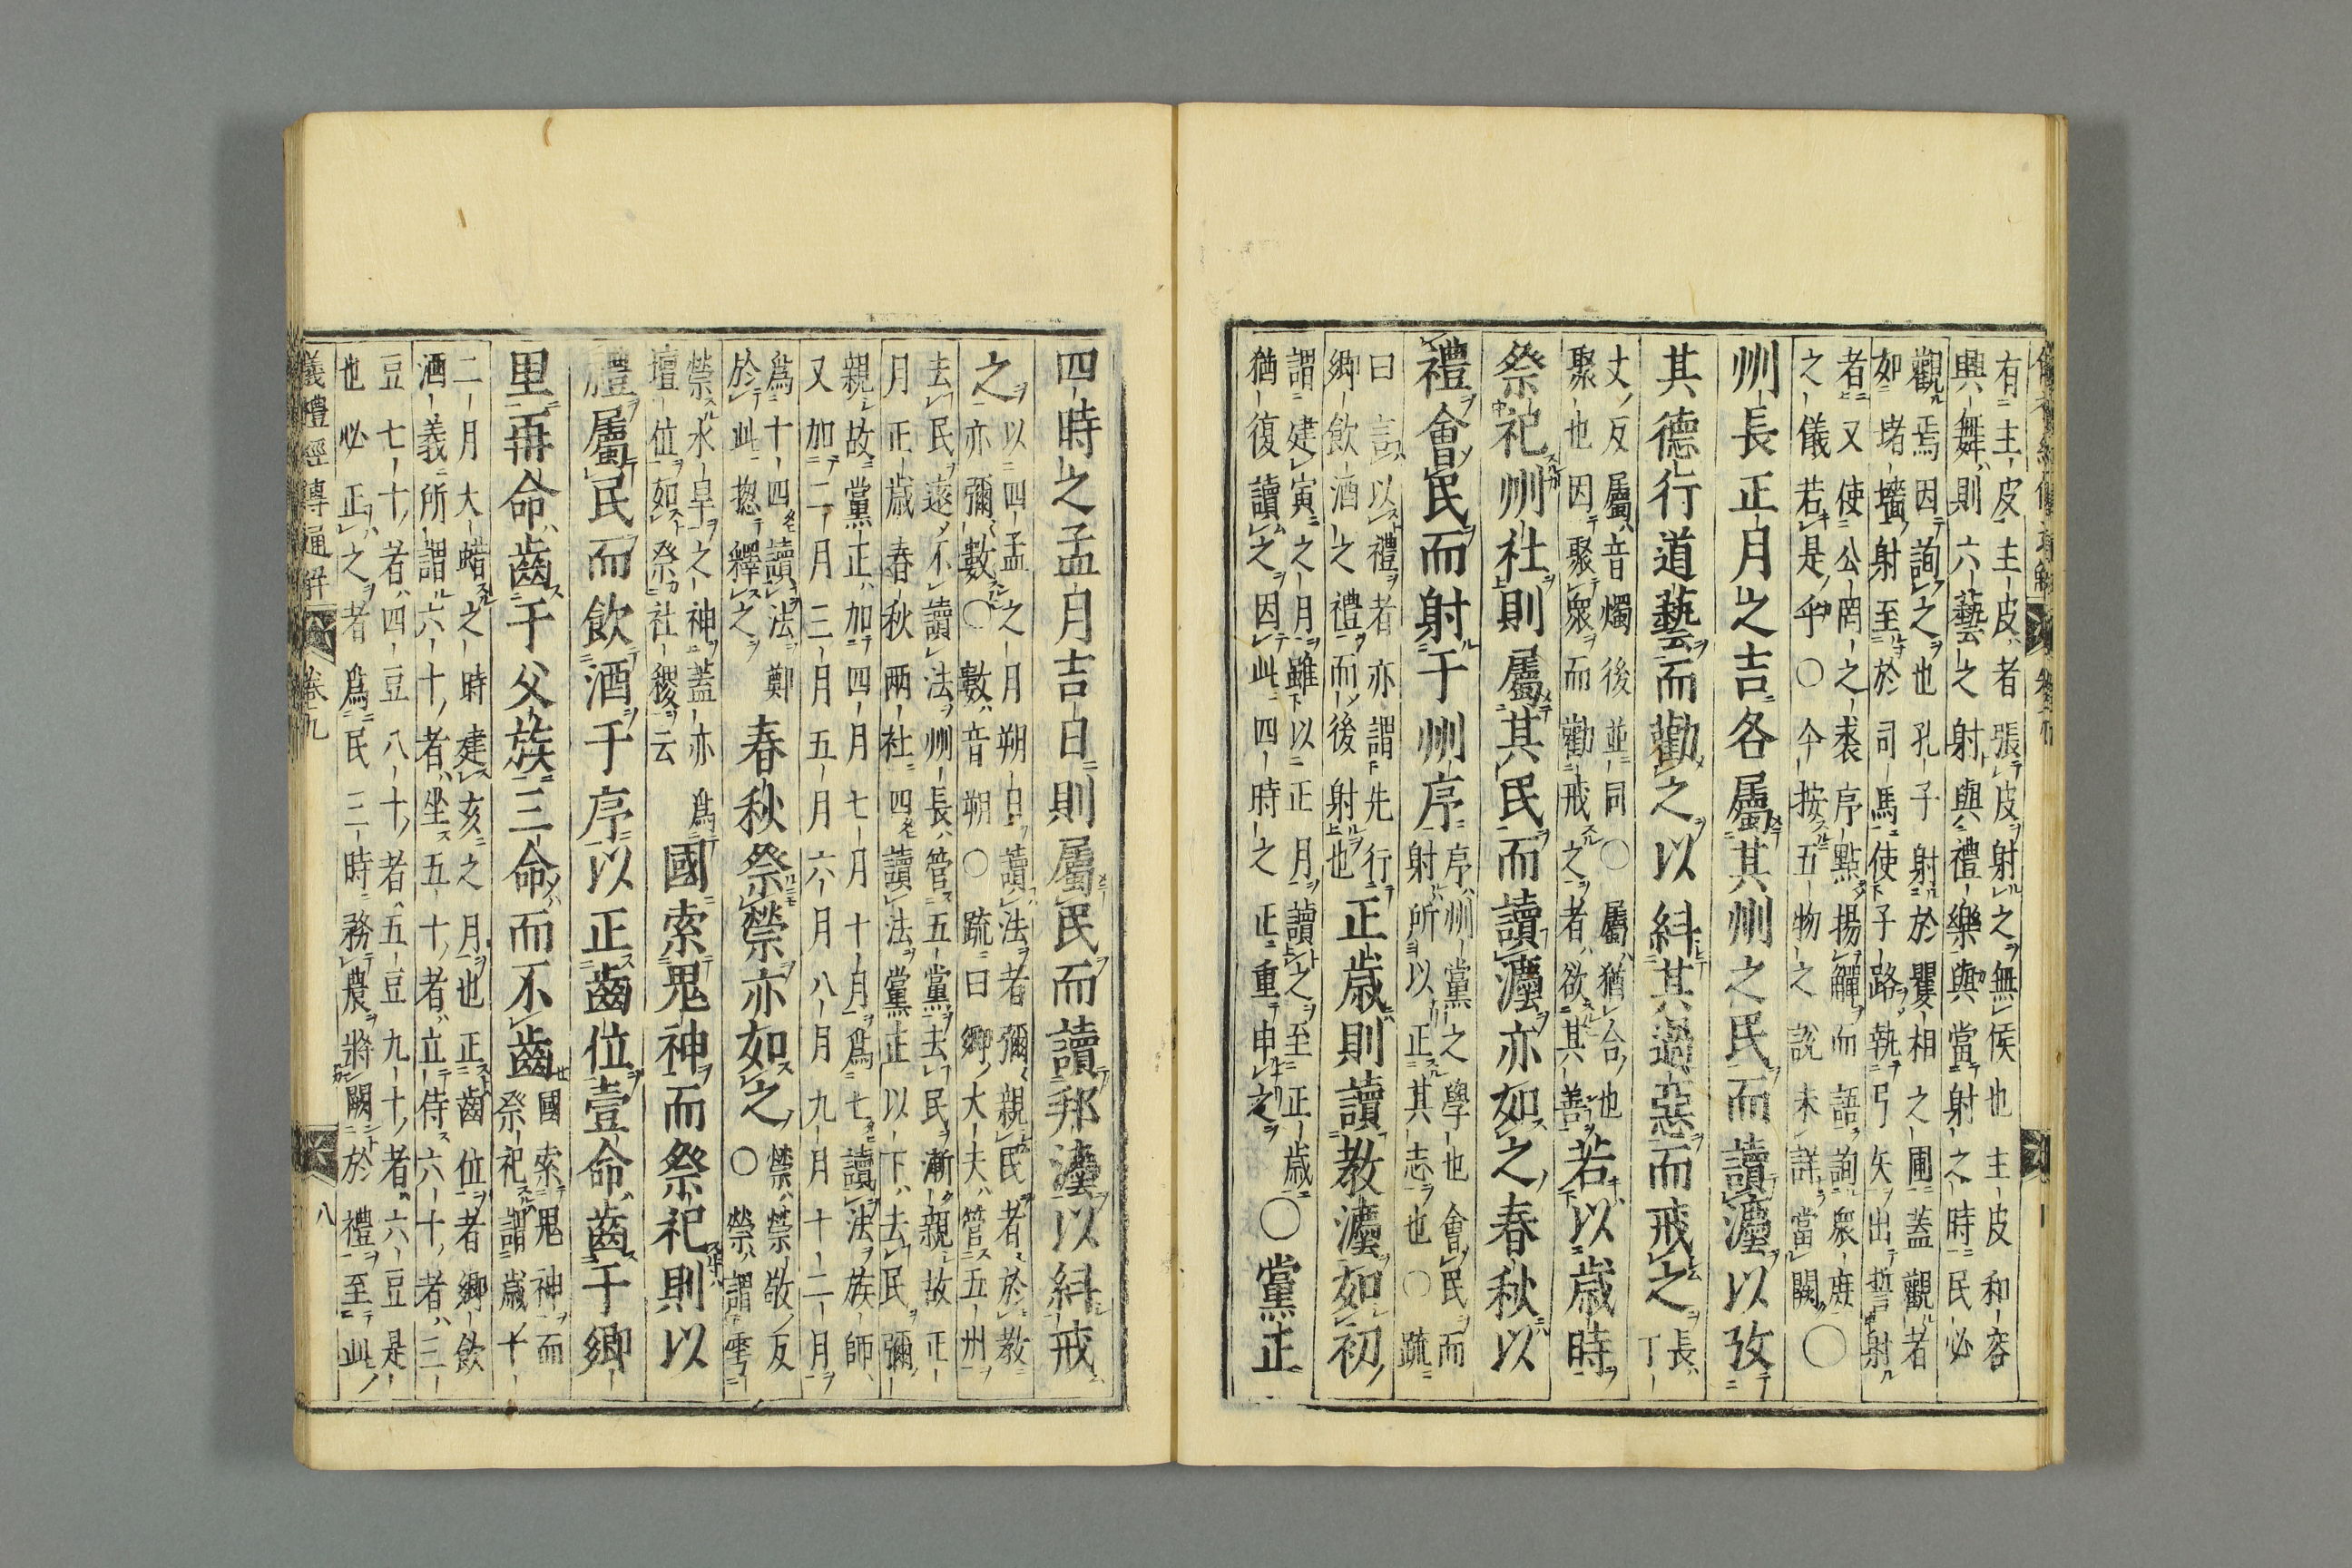 有主皮主皮者張皮射之無侯也主皮和容
興舞則六藝之射與禮樂與當射之時民必
觀焉因詢之也孔子射於矍相之圃蓋觀者
如堵墻射至於司馬使子路執弓矢出誓射
者又使公罔之裘序點揚觶而語詢衆庶
之儀若是乎○今按五物之說未詳當闕○
州長正月之吉各屬其州之民而讀灋以攷
其德行道藝而勸之以糾其過惡而戒之長丁
丈反屬音燭後並同○屬猶合也
聚也因聚衆而勸戒之者欲其善
若以歲時
祭祀州社則屬其民而讀灋亦如之春秋以
禮會民而射于州序
序州黨之學也會民而
射所以正其志也○疏
曰言以禮者亦謂先行
鄉飲酒之禮而後射也
正歲則讀教灋如初
謂建寅之月雖以正月讀之至正歲
猶復讀之因此四時之正重申之
○黨正
四時之孟月吉日則屬民而讀邦灋以糾戒
之
以四孟之月朔日讀法者彌親民者於教
亦彌數○數音朔○疏曰鄉大夫管五州
去民遠不讀法州長管五黨去民漸親故正
月正歲春秋兩社四讀法黨正以下去民彌
親故黨正加四月七月十月爲七讀法族師
又加二月三月五月六月八月九月十二月
爲十四讀法鄭
於此揔釋之
春秋祭禜亦如之
禜禜敬反
○禜謂雩
禜水旱之神蓋亦爲
壇位如祭社稷云
國索鬼神而祭祀則以
禮屬民而飲酒于序以正齒位壹命齒于鄉
里再命齒于父族三命而不齒
國索鬼神而
祭祀謂歲十
二月大蜡之時建亥之月也正齒位者鄉飲
酒義所謂六十者坐五十者立侍六十者三
豆七十者四豆八十者五豆九十者六豆是
也必正之者爲民三時務農將闕於禮至此
儀禮經傳通解 卷九 八